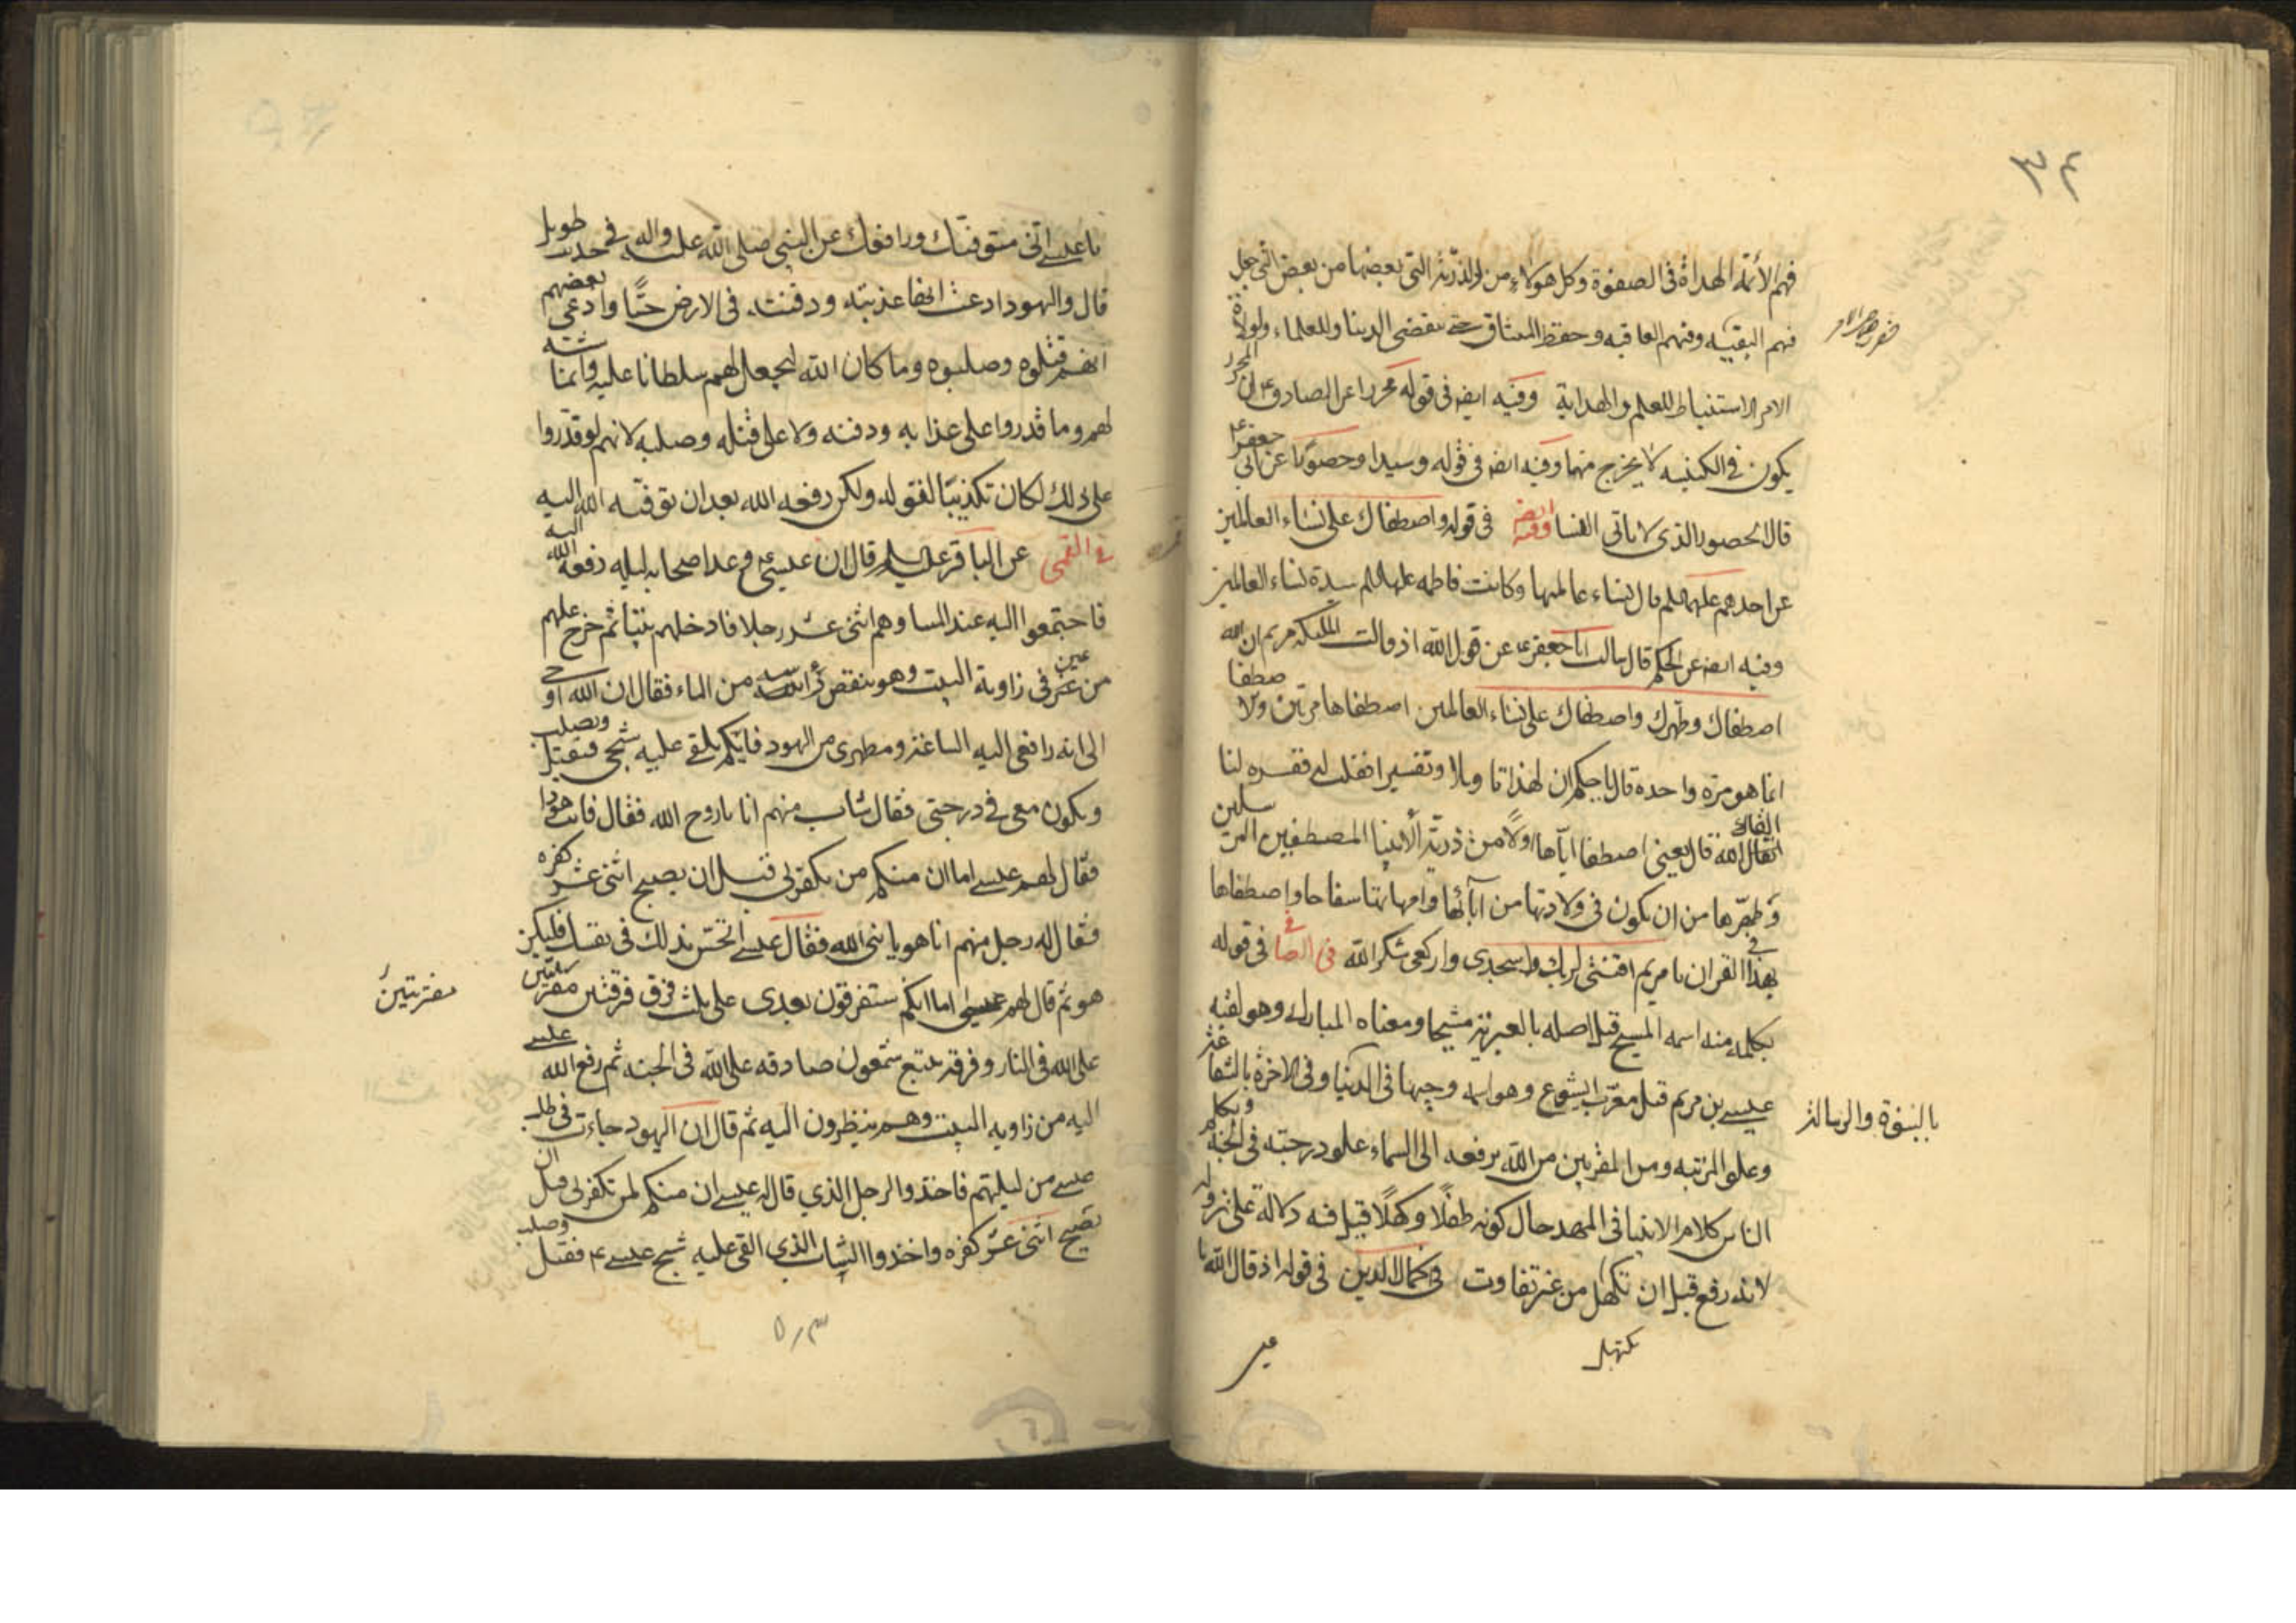 فهم الأئمة الهداة في الصفوة وكل هولاء من الذرية التي بعضها من بعض التي جعل
فهم البقية وفيهم العاقبه وحفظ الميثاق حتى تنقضي الدنيا وللعلماء ولولاة
الامر الاستنباط للعلم والهداية وفيه ايضا في قوله محررا عن الصادق ع ان المحرر
يكون في الكنيسه لا يخرج منها وفيه ايضا في قوله وسيدا وحصورا عن ابي جعفر ع
قال الحصور الذي لا ياتي النسا وفيه ايضا في قوله واصطفاك على نساء العالمين
عن احدهم عليهم السلم قال نساء عالمها وكانت فاطمه عليها السلم سيدة نساء العالمين
وفيه ايضا عن الحكم قال سالت ابا جعفر ع عن قول الله اذ قالت الملئكه يا مريم ان الله
اصطفاك وطهرك واصطفاك على نساء العالمين اصطفاها مرتين والاصطفا
انما هو مرة واحده قال يا حكم ان لهذا تاويلا وتفسيرا فقلت له فقسره لنا
ابقاك الله قال يعني اصطفا اياها اولا من ذرية الأنبيا المصطفين المرسلين
وطهّرها من ان يكون في ولادتها من آبائها وامهاتها سفاحا واصطفاها
بهذا في القران يا مريم اقنتي لربك واسجدي واركعي شكرا لله في الصافي في قوله
بكلمه منه اسمه المسيح قيل اصله بالعبرية مشيحا ومعناه المبارك وهو لقبه
عيسى بن مريم قيل معرّب ايشوع وهو اسمه وجيها في الدنيا وفي الاخرة بالشفاعة
بالنبوة والرسالة
وعلو المرتبه ومن المقربين من الله برفعه الى السماء علو درجته في الجنة ويكلم
الناس كلام الانبيا في المهد حال كونه طفلا وكهلا قيل فيه دلالة على نزوله
لانه رفع قبل ان تكهل من غير تفاوت في كمال الدين في قوله اذ قال الله يا
يا عيسى اني متوفيك ورافعك عن النبي صلى الله عليه واله في حديث طويل
قال واليهود ادعت انها عذبته ودفنته في الارض حيّا وادعى بعضهم
انهم قتلوه وصلبوه وما كان الله ليجعل لهم سلطانا عليه وانما شبه
لهم وما قدروا على عذابه ودفنه ولا على قتله وصلبه لانهم لو قدروا
على ذلك لكان تكذيبًا لقوله ولكن رفعه الله بعد ان توفيه الله اليه
في القمي عن الباقر عليه السلم قال ان عيسى ع وعد اصحابه ليله رفعه الله اليه
فاجتمعوا اليه عند المسا وهم اثنى عشر رجلا فادخلهم بيتا ثم خرج عليهم
من عين في زاوية البيت وهو ينقض رأسه من الماء فقال ان الله اوحى
الى انه رافعي اليه الساعة ومطهري من اليهود فايكم يلقى عليه شبحي فيقتل ويصلب
ويكون معي في درجتي فقال شاب منهم انا يا روح الله فقال فانت هوذا
فقال لهم عيسى اما ان منكم من يكفر بي قبل ان يصبح اثنى عشر كفره
فقال له رجل منهم انا هو يا نبي الله فقال عيسى اتحس بذلك في نفسك فليكن
هو ثم قال لهم عيسى اما انكم ستفرقون بعدي على ثلث فرق فرقتين مفتريتين
مفتريتين
على الله في النار وفرقة تتبع شمعون صادقه على الله في الجنه ثم رفع الله عيسى
اليه من زاويه البيت وهم ينظرون اليه ثم قال ان اليهود جاءت في طلب
عيسى من ليلتهم فاخذوا الرجل الذي قال له عيسى ان منكم لمن يكفر بي قبل ان
تصبح اثنى عشر كفره واخذوا الشاب الذي القي عليه شبح عيسى ع فقتل وصلب